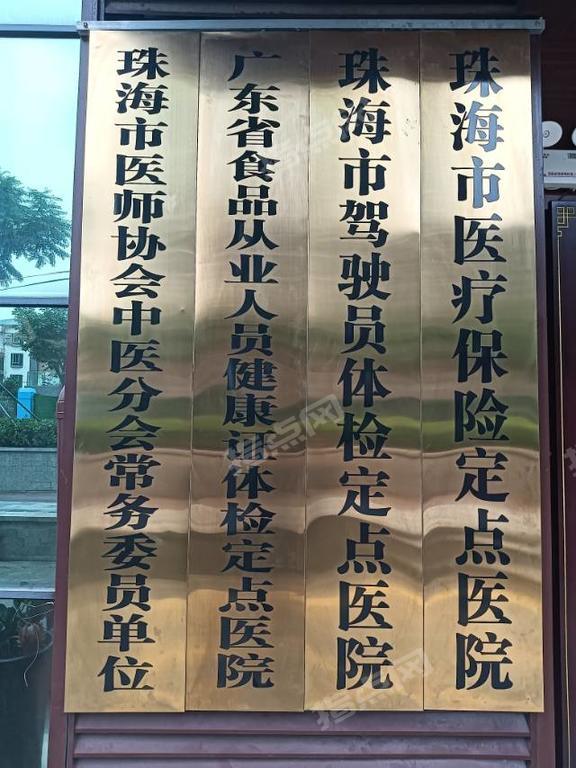 珠海市医疗保险定点医院
珠海市驾驶员体检定点医院
广东省食品从业人员健康证体检定点医院
珠海市医师协会中医分会常务委员单位